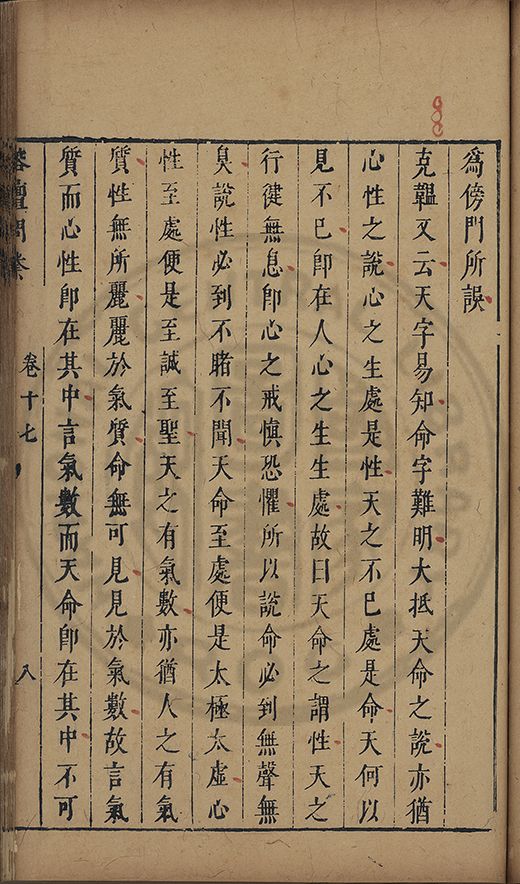 為傍門所誤
克韞又云天字易知命字難明大抵天命之說亦猶
心性之說心之生處是性天之不已處是命天何以
見不已即在人心之生生處故曰天命之謂性天之
行健無息即心之戒慎恐懼所以說命必到無聲無
臭說性必到不睹不聞天命至處便是太極太虛心
性至處便是至誠至聖天之有氣數亦猶人之有氣
質性無所麗麗於氣質命無可見見於氣數故言氣
質而心性即在其中言氣數而天命即在其中不可
卷十七
八